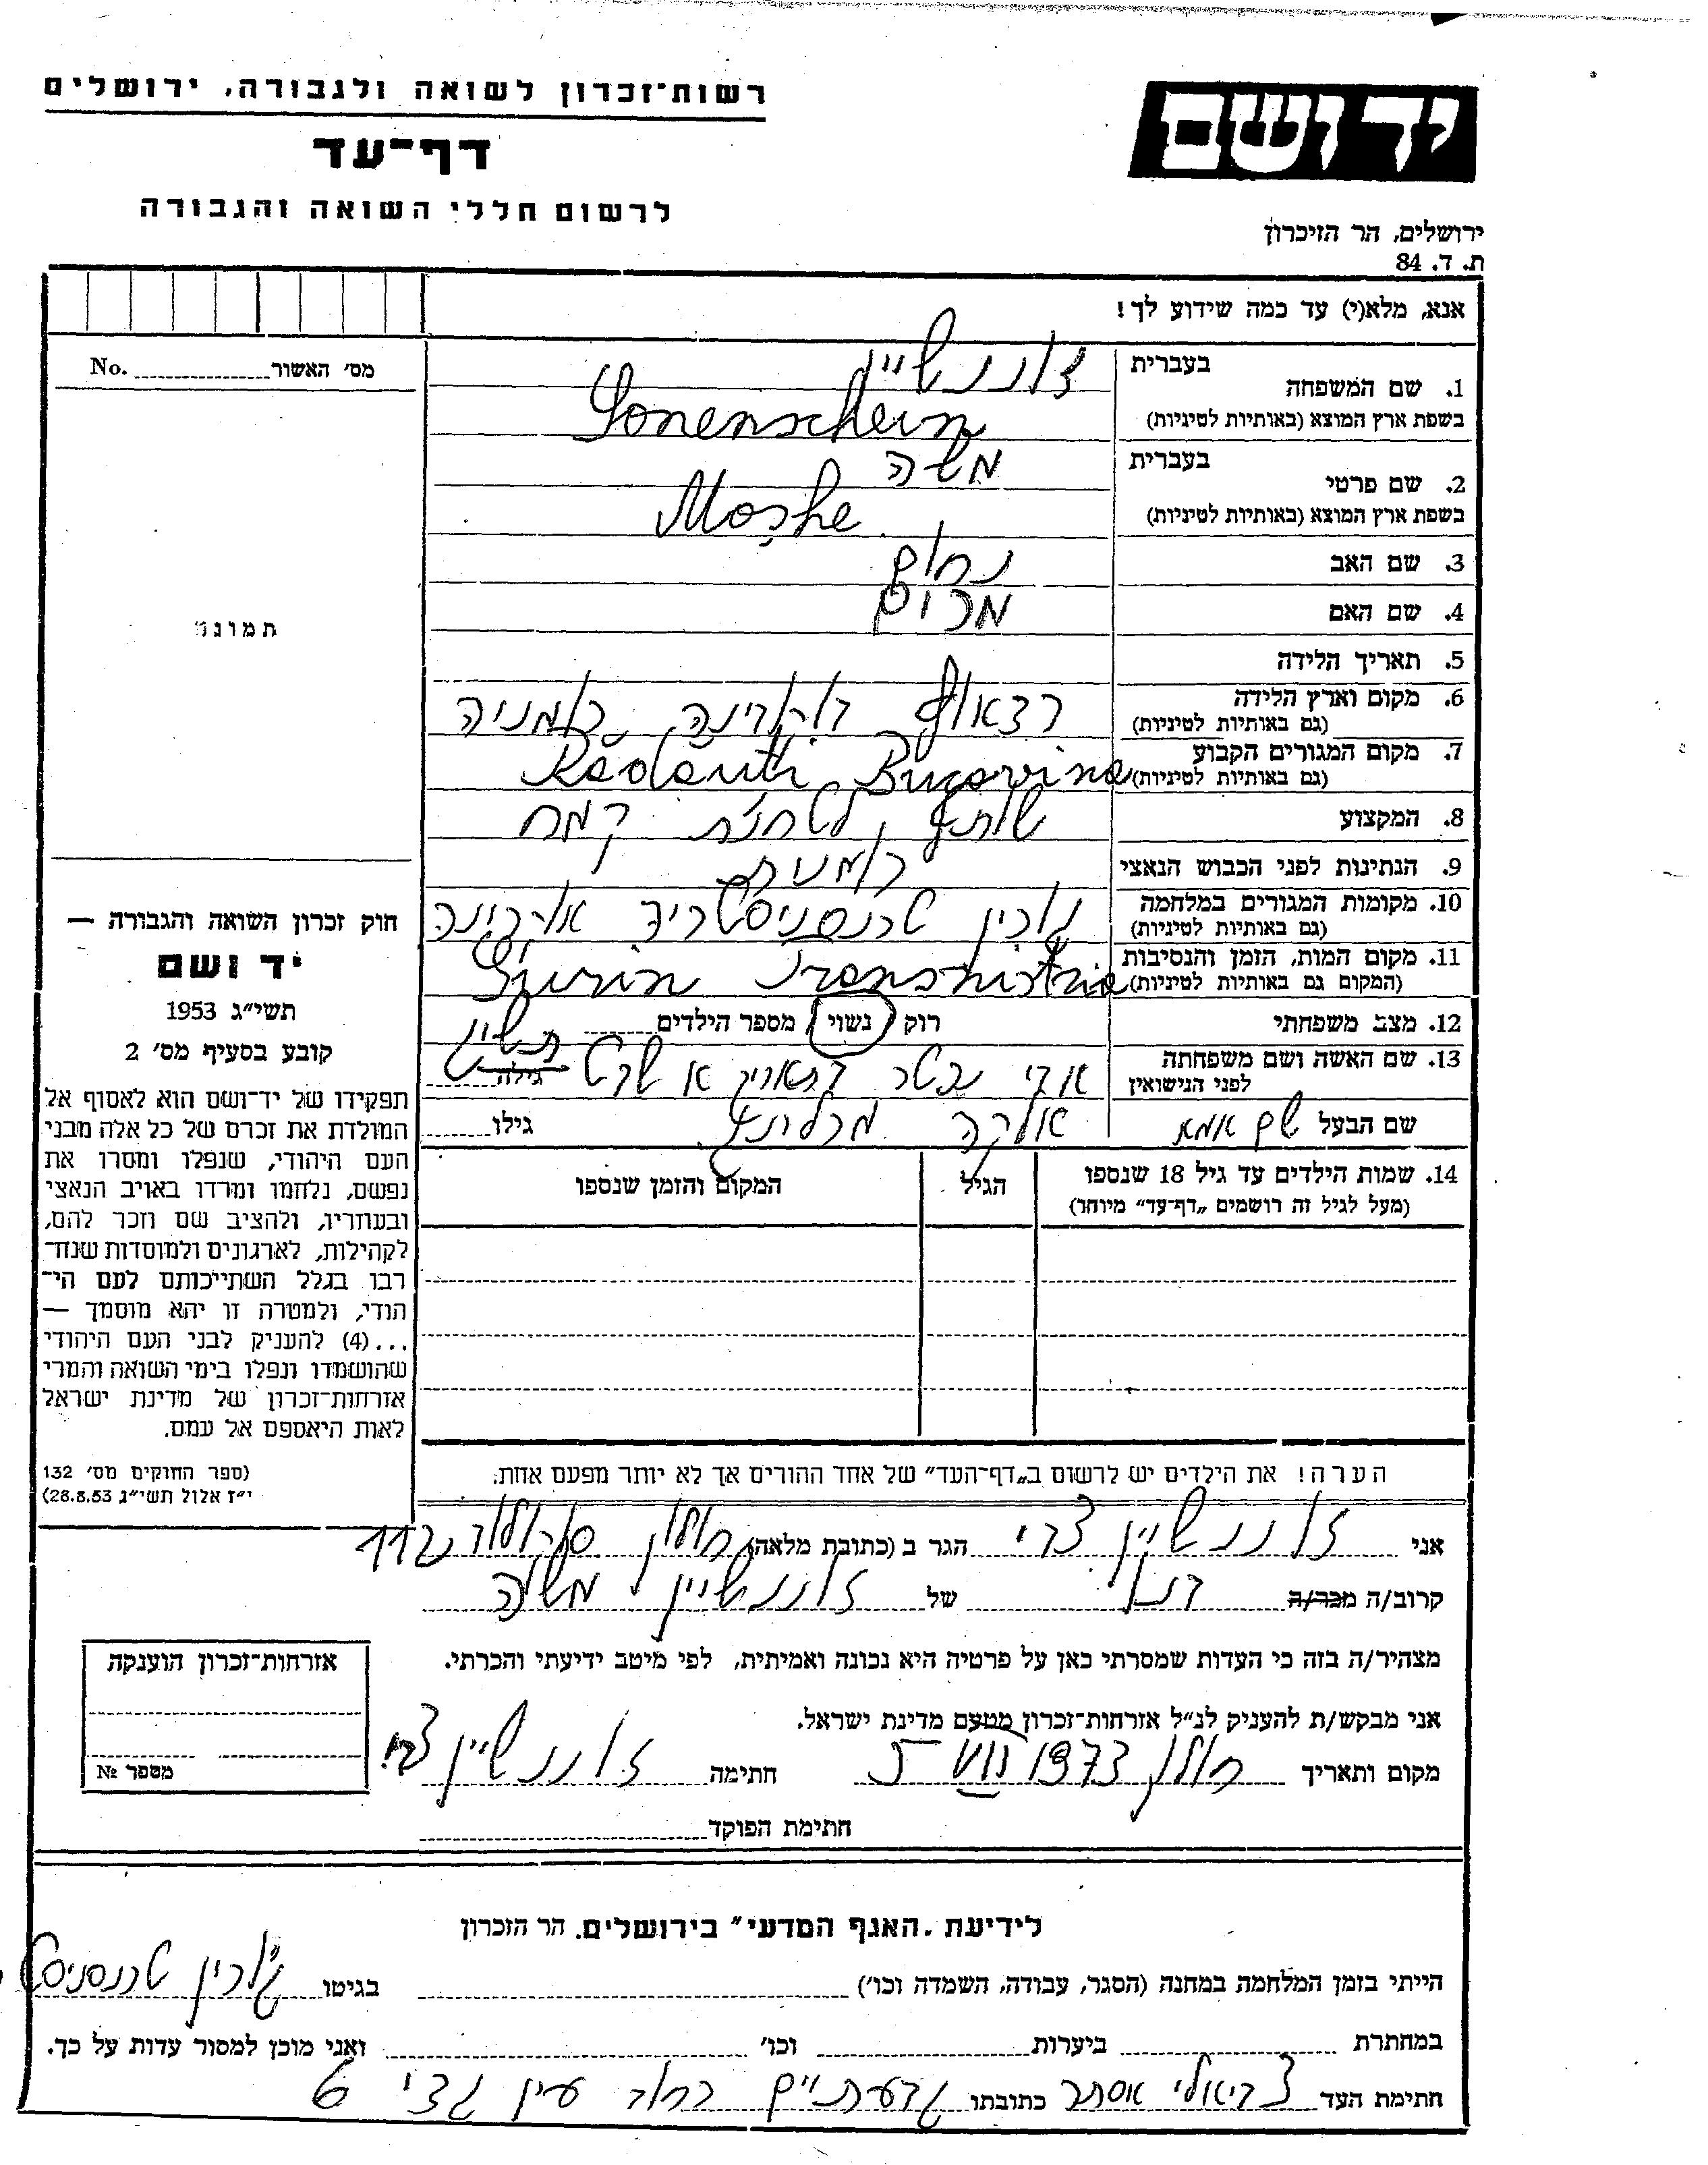 רשות־זכרון לשואה ולגבורה, ירושלים
דף־עד
לרשום חללי השואה והגבורה
יד ושם
ירושלים, הר הזיכרון
ת. ד. 84
אנא, מלא(י) עד כמה שידוע לך!
מס׳ האשור No.
תמונה
1. שם המשפחה בעברית זוננשיין
בשפת ארץ המוצא (באותיות לטיניות) Sonenschein
2. שם פרטי בעברית משה
בשפת ארץ המוצא (באותיות לטיניות) Moshe
3. שם האב נחום
4. שם האם מרים
5. תאריך הלידה
6. מקום וארץ הלידה (גם באותיות לטיניות) רדאוץ בוקובינה רומניה
7. מקום המגורים הקבוע (גם באותיות לטיניות) Rădăuti Bucovina
8. המקצוע שותף לטחנת קמח
9. הנתינות לפני הכבוש הנאצי רומנית
10. מקומות המגורים במלחמה (גם באותיות לטיניות) טרנסניסטריה
11. מקום המות, הזמן והנסיבות (המקום גם באותיות לטיניות) Transnistria
12. מצב משפחתי רוק / נשוי / מספר הילדים
13. שם האשה ושם משפחתה לפני הנישואין גילה
שם הבעל שם אמא אלקה גילו
14. שמות הילדים עד גיל 18 שנספו הגיל המקום והזמן שנספו
(מעל לגיל זה רושמים „דף־עד” מיוחד)
הערה! את הילדים יש לרשום ב„דף־העד” של אחד ההורים אך לא יותר מפעם אחת.
חוק זכרון השואה והגבורה —
יד ושם
תשי״ג 1953
קובע בסעיף מס׳ 2
תפקידו של יד־ושם הוא לאסוף אל
המולדת את זכרם של כל אלה מבני
העם היהודי, שנפלו ומסרו את
נפשם, נלחמו ומרדו באויב הנאצי
ובעוזריו, ולהציב שם וזכר להם,
לקהילות, לארגונים ולמוסדות שנח־
רבו בגלל השתייכותם לעם הי־
הודי, ולמטרה זו יהא מוסמך —
...(4) להעניק לבני העם היהודי
שהושמדו ונפלו בימי השואה והמרי
אזרחות־זכרון של מדינת ישראל
לאות היאספם אל עמם.
(ספר החוקים מס׳ 132
י״ז אלול תשי״ג 28.8.53)
אני זוננשיין צבי הגר ב (כתובת מלאה) חולון
קרוב/ה מכר/ה בנו של זוננשיין משה
מצהיר/ה בזה כי העדות שמסרתי כאן על פרטיה היא נכונה ואמיתית, לפי מיטב ידיעתי והכרתי.
אני מבקש/ת להעניק לנ״ל אזרחות־זכרון מטעם מדינת ישראל.
מקום ותאריך חולון 1973 חתימה זוננשיין צבי
חתימת הפוקד
אזרחות־זכרון הוענקה
מספר №
לידיעת „האגף המדעי” בירושלים, הר הזכרון
הייתי בזמן המלחמה במחנה (הסגר, עבודה, השמדה וכו׳) בגיטו
במחתרת ביערות וכו׳ ואני מוכן למסור עדות על כך.
חתימת העד אסתר כתובתו גבעתיים רחוב עין גדי 6